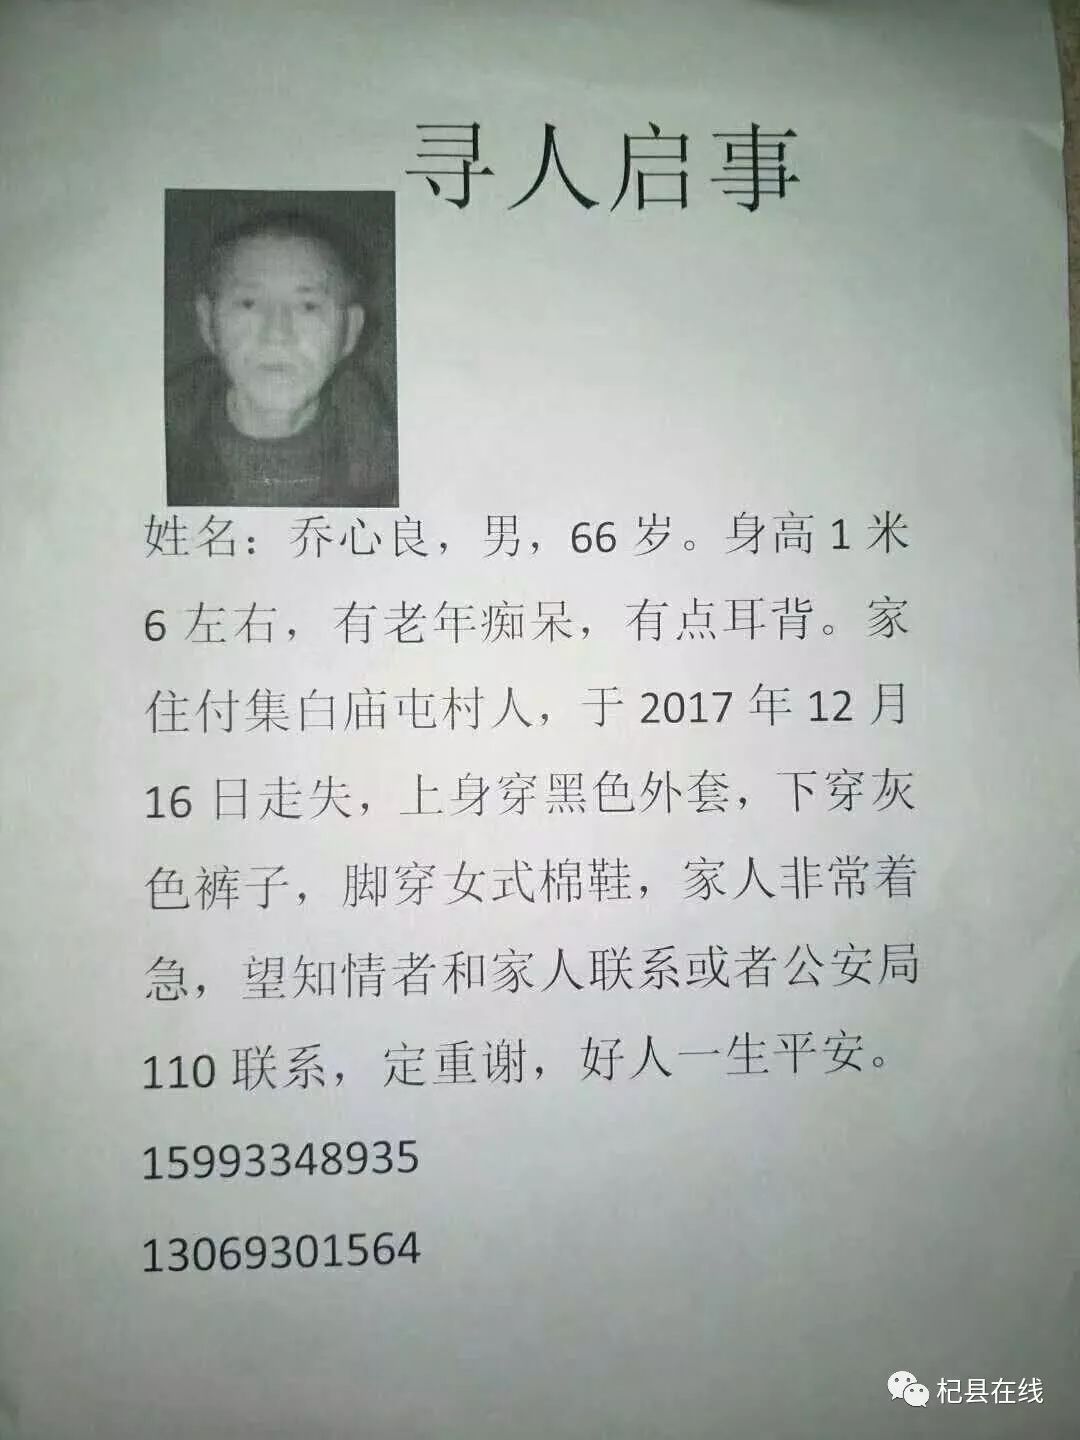 寻人启事
姓名：乔心良，男，66 岁。身高 1 米
6 左右，有老年痴呆，有点耳背。家
住付集白庙屯村人，于 2017 年 12 月
16 日走失，上身穿黑色外套，下穿灰
色裤子，脚穿女式棉鞋，家人非常着
急，望知情者和家人联系或者公安局
110 联系，定重谢，好人一生平安。
15993348935
13069301564
杞县在线